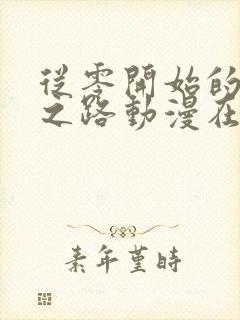 從零開始的
之路動漫在
素年堇時